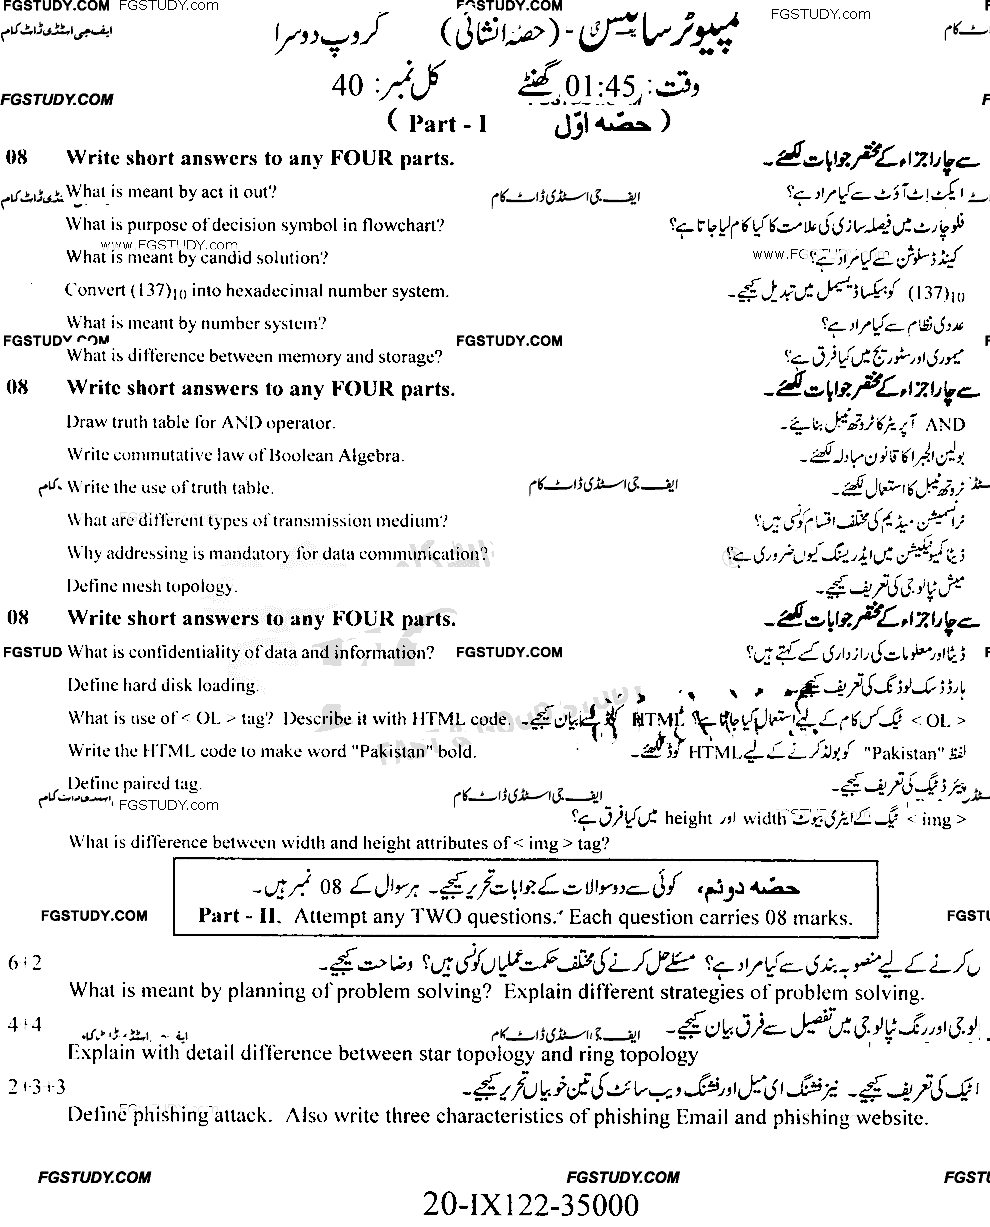 FGSTUDY.COM FGSTUDY.COM FGSTUDY.COM FGSTUDY.COM
ایف جی اسٹڈی ڈاٹ کام کمپیوٹر سائنس - (حصہ انشائی) گروپ دوسرا
FGSTUDY.COM وقت: 01:45 گھنٹے کل نمبر: 40
( Part - I حصہ اوّل )
08 Write short answers to any FOUR parts. سے چار اجزاء کے مختصر جوابات لکھئے۔
What is meant by act it out? ایف جی اسٹڈی ڈاٹ کام ایکٹ اٹ آؤٹ سے کیا مراد ہے؟
What is purpose of decision symbol in flowchart? فلو چارٹ میں فیصلہ سازی کی علامت کا کیا کام لیا جاتا ہے؟
www.FGSTUDY.com
What is meant by candid solution? کینڈڈ سلوشن سے کیا مراد ہے؟
Convert (137)10 into hexadecimal number system. (137)10 کو ہیکساڈیسیمل میں تبدیل کیجیے۔
What is meant by number system? عددی نظام سے کیا مراد ہے؟
FGSTUDY.COM FGSTUDY.COM
What is difference between memory and storage? میموری اور سٹوریج میں کیا فرق ہے؟
08 Write short answers to any FOUR parts. سے چار اجزاء کے مختصر جوابات لکھئے۔
Draw truth table for AND operator. AND آپریٹر کا ٹروتھ ٹیبل بنائیے۔
Write commutative law of Boolean Algebra. بولین الجبرا کا قانون مبادلہ لکھئے۔
Write the use of truth table. ایف جی اسٹڈی ڈاٹ کام ٹروتھ ٹیبل کا استعمال لکھئے۔
What are different types of transmission medium? ٹرانسمیشن میڈیم کی مختلف اقسام کونسی ہیں؟
Why addressing is mandatory for data communication? ڈیٹا کمیونیکیشن میں ایڈریسنگ کیوں ضروری ہے؟
Define mesh topology. میش ٹپالوجی کی تعریف کیجیے۔
08 Write short answers to any FOUR parts. سے چار اجزاء کے مختصر جوابات لکھئے۔
FGSTUD What is confidentiality of data and information? FGSTUDY.COM ڈیٹا اور معلومات کی رازداری کسے کہتے ہیں؟
Define hard disk loading. ہارڈ ڈسک لوڈنگ کی تعریف کیجیے۔
What is use of < OL > tag? Describe it with HTML code. < OL > ٹیگ کس کام کے لیے استعمال کیا جاتا ہے؟ HTML کوڈ سے بیان کیجیے۔
Write the HTML code to make word "Pakistan" bold. لفظ "Pakistan" کو بولڈ کرنے کے لیے HTML کوڈ لکھئے۔
Define paired tag. پیئرڈ ٹیگ کی تعریف کیجیے۔
FGSTUDY.COM ایف جی اسٹڈی ڈاٹ کام
< img > ٹیگ کے ایٹری بیوٹ width اور height میں کیا فرق ہے؟
What is difference between width and height attributes of < img > tag?
حصہ دوئم، کوئی سے دو سوالات کے جوابات تحریر کیجیے۔ ہر سوال کے 08 نمبر ہیں۔
FGSTUDY.COM Part - II. Attempt any TWO questions. Each question carries 08 marks. FGSTU
6+2 کرنے کے لیے منصوبہ بندی سے کیا مراد ہے؟ مسئلے حل کرنے کی مختلف حکمت عملیاں کونسی ہیں؟ وضاحت کیجیے۔
What is meant by planning of problem solving? Explain different strategies of problem solving.
4+4 ایف جی اسٹڈی ڈاٹ کام لوجی اور رنگ ٹپالوجی میں تفصیل سے فرق بیان کیجیے۔
Explain with detail difference between star topology and ring topology
2+3+3 اٹیک کی تعریف کیجیے۔ نیز فشنگ ای میل اور فشنگ ویب سائٹ کی تین خوبیاں تحریر کیجیے۔
Define phishing attack. Also write three characteristics of phishing Email and phishing website.
FGSTUDY.COM FGSTUDY.COM FGSTU
20-IX122-35000